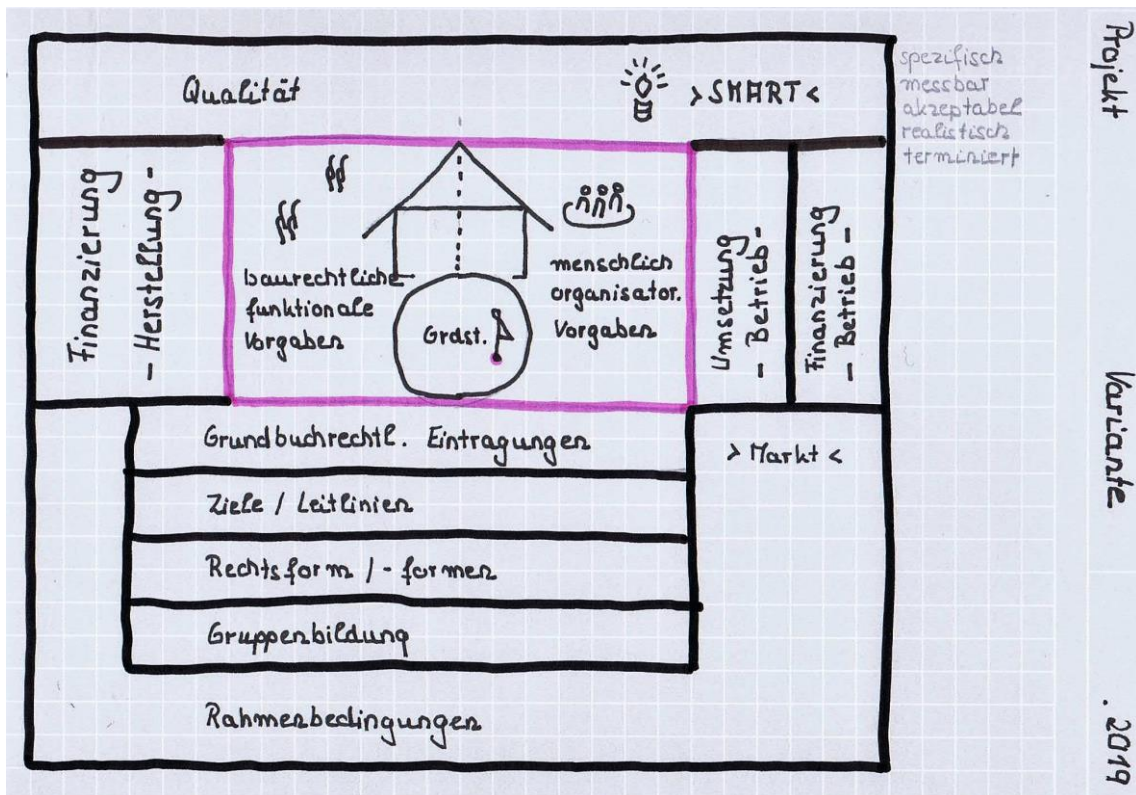 Qualität
>SMART<
spezifisch
messbar
akzeptabel
realistisch
terminiert
Projekt
Variante
. 2019
Finanzierung
- Herstellung -
baurechtliche
funktionale
Vorgaben
Grdst.
menschlich
organisator.
Vorgaben
Umsetzung
- Betrieb -
Finanzierung
- Betrieb -
Grundbuchrechtl. Eintragungen
> Markt <
Ziele / Leitlinien
Rechtsform / - formen
Gruppenbildung
Rahmenbedingungen